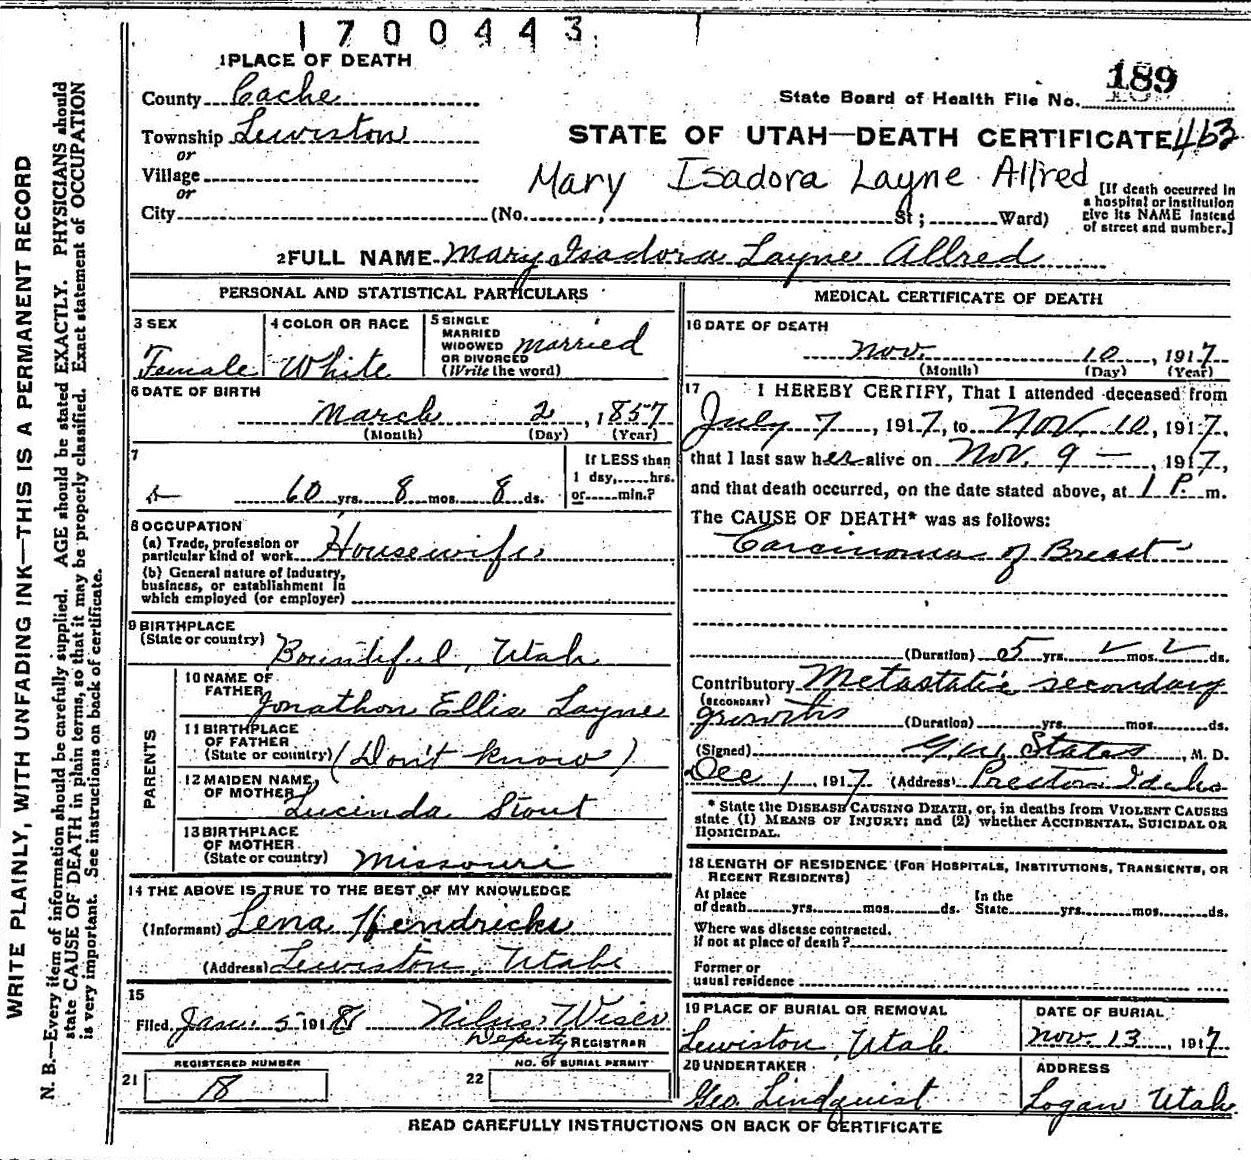 1700443
1 PLACE OF DEATH
189
County Cache
State Board of Health File No.
Township Lewiston
STATE OF UTAH—DEATH CERTIFICATE 463
or
Village
Mary Isadora Layne Allred
or
[If death occurred in
a hospital or institution
give its NAME instead
of street and number.]
City (No. , St ; Ward)
2 FULL NAME Mary Isadora Layne Allred
PERSONAL AND STATISTICAL PARTICULARS
3 SEX
Female
4 COLOR OR RACE
White
5 SINGLE
MARRIED
WIDOWED
OR DIVORCED
(Write the word)
Married
6 DATE OF BIRTH
March 2, 1857
(Month) (Day) (Year)
7
60 yrs. 8 mos. 8 ds.
If LESS than
1 day, hrs.
or min.?
8 OCCUPATION
(a) Trade, profession or
particular kind of work Housewife
(b) General nature of industry,
business, or establishment in
which employed (or employer)
9 BIRTHPLACE
(State or country) Bountiful, Utah
PARENTS
10 NAME OF
FATHER
Jonathon Ellis Layne
11 BIRTHPLACE
OF FATHER
(State or country) (Don't know)
12 MAIDEN NAME
OF MOTHER
Lucinda Stout
13 BIRTHPLACE
OF MOTHER
(State or country) Missouri
14 THE ABOVE IS TRUE TO THE BEST OF MY KNOWLEDGE
(Informant) Lena Hendricks
(Address) Lewiston, Utah
15
Filed Jan. 5 1918 Nilus Wiser
Deputy REGISTRAR
REGISTERED NUMBER
21 18
NO. OF BURIAL PERMIT
22
MEDICAL CERTIFICATE OF DEATH
16 DATE OF DEATH
Nov. 10, 1917
(Month) (Day) (Year)
17 I HEREBY CERTIFY, That I attended deceased from
July 7, 1917, to Nov. 10, 1917,
that I last saw her alive on Nov. 9 —, 1917,
and that death occurred, on the date stated above, at 1 P. m.
The CAUSE OF DEATH* was as follows:
Carcinoma of Breast
(Duration) 5 yrs. mos. ds.
Contributory Metastatic secondary
(SECONDARY)
growths (Duration) yrs. mos. ds.
(Signed) G.W. States, M. D.
Dec 1, 1917 (Address) Preston Idaho
* State the DISEASE CAUSING DEATH, or, in deaths from VIOLENT CAUSES
state (1) MEANS OF INJURY; and (2) whether ACCIDENTAL, SUICIDAL OR
HOMICIDAL.
18 LENGTH OF RESIDENCE (FOR HOSPITALS, INSTITUTIONS, TRANSIENTS, OR
RECENT RESIDENTS)
At place
of death yrs. mos. ds.
In the
State yrs. mos. ds.
Where was disease contracted,
if not at place of death?
Former or
usual residence
19 PLACE OF BURIAL OR REMOVAL
Lewiston, Utah
DATE OF BURIAL
Nov. 13, 1917
20 UNDERTAKER
Geo Lindquist
ADDRESS
Logan Utah
READ CAREFULLY INSTRUCTIONS ON BACK OF CERTIFICATE
WRITE PLAINLY, WITH UNFADING INK—THIS IS A PERMANENT RECORD
N. B.—Every item of information should be carefully supplied. AGE should be stated EXACTLY. PHYSICIANS should
state CAUSE OF DEATH in plain terms, so that it may be properly classified. Exact statement of OCCUPATION
is very important. See instructions on back of certificate.